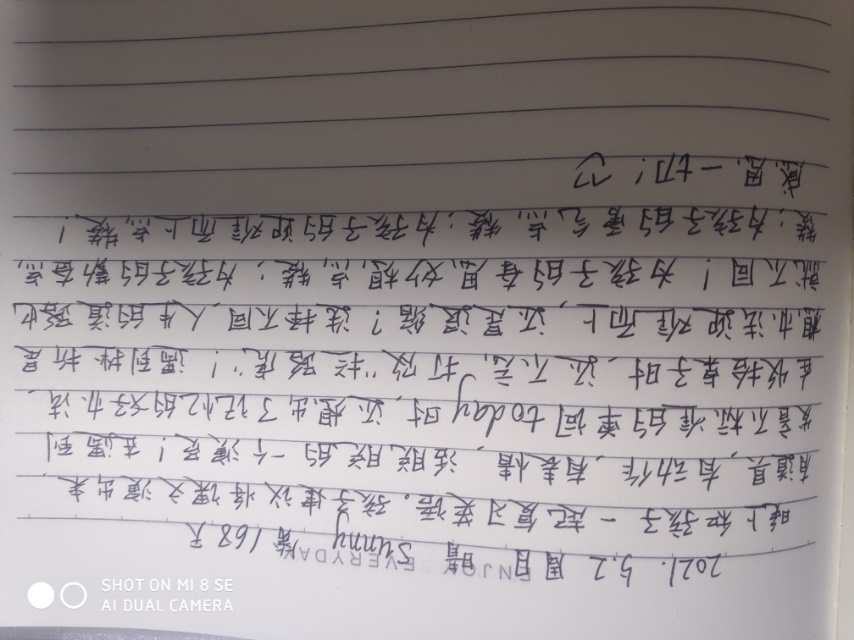 ENJOY EVERYDAY
2021. 5.2 周日 晴 sunny 第168天
晚上和孩子一起复习英语。孩子建议将课文演出来,
有道具,有动作,有表情,活脱脱的一个演员!在遇到
发音不标准的单词today时,还想出了记忆的好办法,
在收拾桌子时,还不忘,打败“拦路虎”!遇到挫折是
想办法迎难而上,还是退缩?选择不同,人生的道路也
就不同!为孩子的奇思妙想,点赞;为孩子的勤奋,点
赞;为孩子的勇气,点赞;为孩子的迎难而上,点赞!
感恩一切!
SHOT ON MI 8 SE
AI DUAL CAMERA